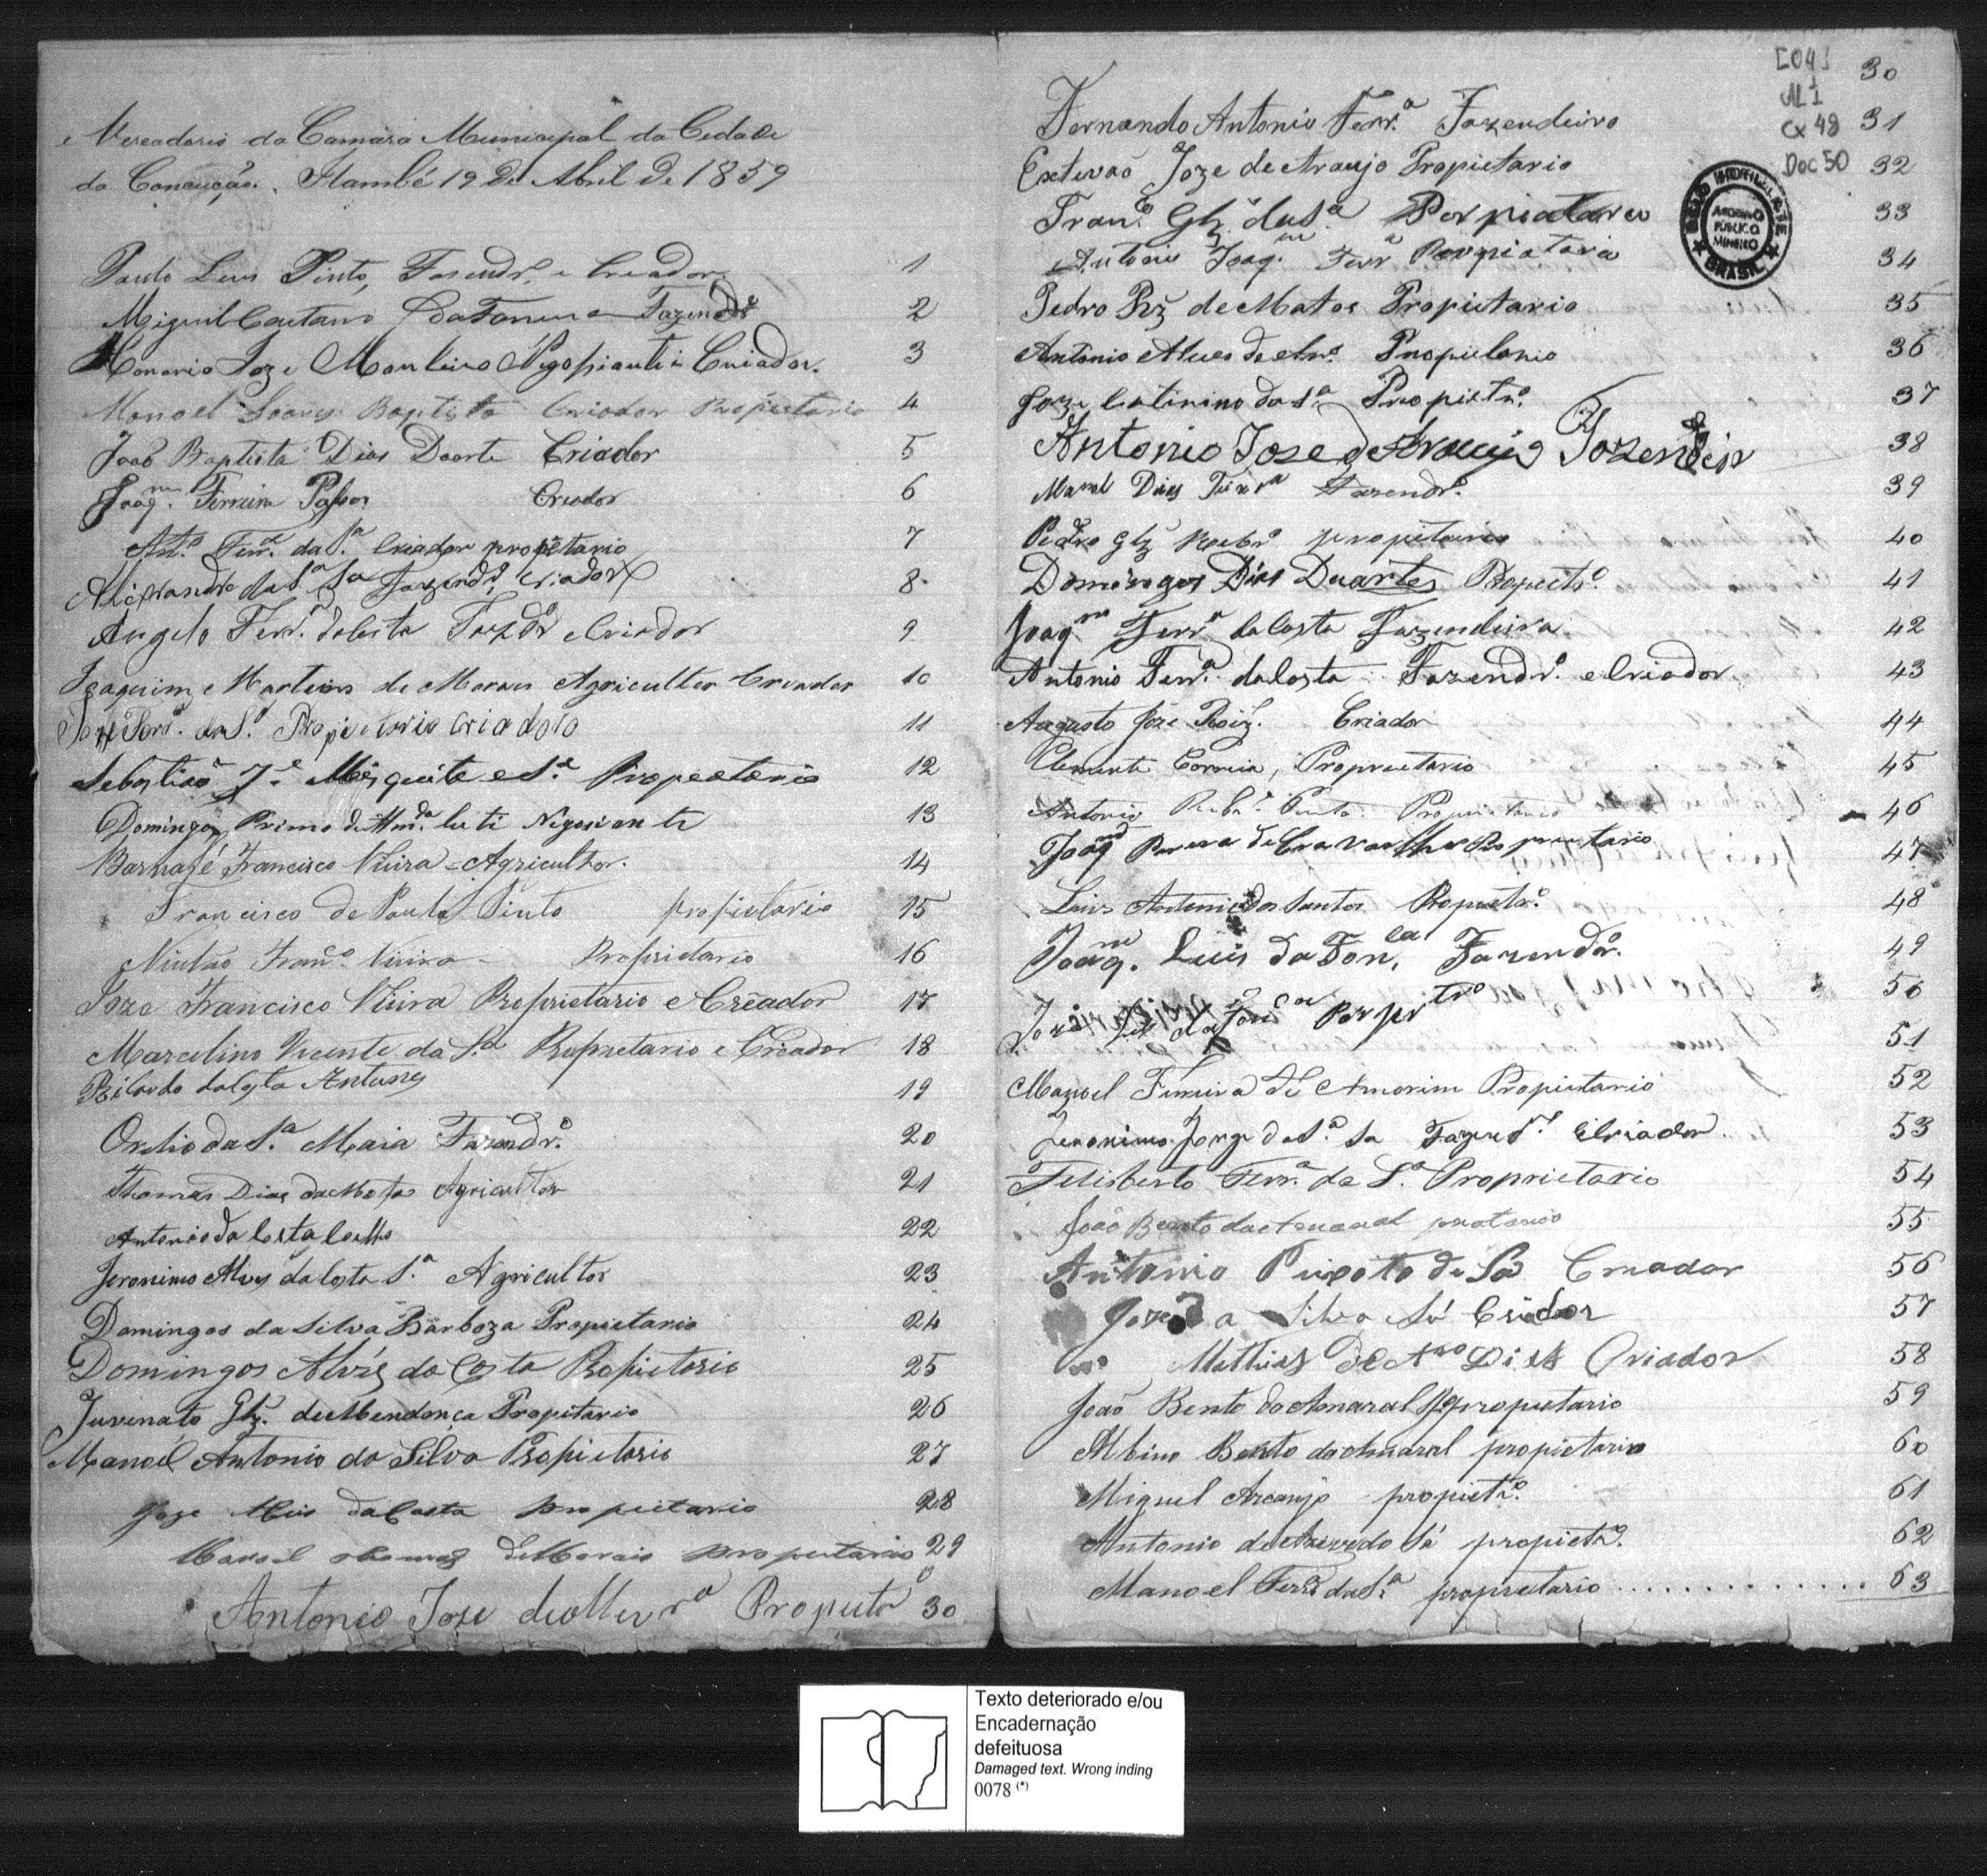 e Vereadoris da Camara Municipal da Cidade
da Conceição. Itambé 19 de Abril de 1859
Paulo Luis Pinto, Fasendr.º e Creador 1
Miguel Caetano da Fonseca Fazendr.º 2
Honorio Joze Monteiro Negosiante Criador. 3
Manoel Soares Baptista Criador Propietario 4
João Baptista Dias Doarte Criador 5
Joaq.m Ferreira Passos Criador 6
Ant.º Ferr.ª da S.ª Criador propetario 7
Alexandre da S.ª Sa Fazendr.º Criador 8
Angelo Ferr.ª da Costa Fazdr.º e Criador 9
Joaquim Martins de Morais Agricultor Creador 10
da S.ª Propietario Criador 11
Sebastião J.e Mesquita e S.ª Propeatario 12
Domingos Primo de Negosiante 13
Barnabé Francisco Vieira Agricultor. 14
Francisco de Paula Pinto propietario 15
Fran.co Vieira Propridario 16
Joze Francisco Vieira Proprietario e Creador 17
Marcelino Vicente da S.ª Proprietario e Criador 18
Ricardo da Costa Antunes 19
da S.ª Maia Fazendr.º 20
Thomas Dias da Mota Agricultor 21
Antonio da Costa Coelho 22
Jeronimo Alves da Costa S.ª Agricultor 23
Domingos da Silva Barboza Propietario 24
Domingos Alves da Costa Propietario 25
Juvenato Glz. de Mendonça Propitario 26
Manoel Antonio da Silva Propietario 27
Joze da Costa Propietario 28
Manoel Thomas de Morais Propietario 29
Antonio Joze de Propietr.º 30
[04]
AL 1
Cx 48
Doc 50
30
Fernando Antonio Ferr.ª Fazendeiro 31
Estevão Joze de Araujo Propietario 32
Fran.co Glz. da S.ª Porpiatario 33
Antonio Joaq.m Ferr.ª Porpiatario 34
Pedro Rz de Matos Propietario 35
Antonio Alves de Propietario 36
Joze da S.ª Propietr.º 37
Antonio Jose de Araujo Fozendeir 38
Man.el Dias Teixr.ª Fazendr.º 39
Pedro Glz propietario 40
Domingos Dias Duartes Propietr.º 41
Joaq.m Ferr.ª da Costa Fazendeiro 42
Antonio Ferr.ª da Costa Fazendr.º e Criador 43
Augusto Joze Roiz. Criador 44
Clemente Correia, Proprietario 45
Antonio Rib.º Pinto Proprietario 46
Joaq.m Pereira de Carvalho Proprietario 47
Luis Antonio dos Santos Propietr.º 48
Joaq.m Luis da Fon.ca Fazendr.º 49
50
da Fon.ca Porprtr.º 51
Manoel Ferreira de Amorim Propietario 52
Jeronimo Jorge da S.ª Sa Fazendr.º e Criador 53
Felisberto Ferr.ª da S.ª Proprietario 54
João Bento do Amaral 55
Antonio Peixoto de Sá Creador 56
Joze da Silva Sá Criador 57
Mathias de Dias Criador 58
João Bento do Amaral propietario 59
Albino Bento do Amaral propietario 60
Miguel Arcanjo propietr.º 61
Antonio de Azevedo Sá propietr.º 62
Manoel Ferr.ª da S.ª proprietario .............. 63
BELO HORIZONTE
ARQUIVO
PÚBLICO
MINEIRO
BRASIL
Texto deteriorado e/ou
Encadernação
defeituosa
Damaged text. Wrong inding
0078 (*)